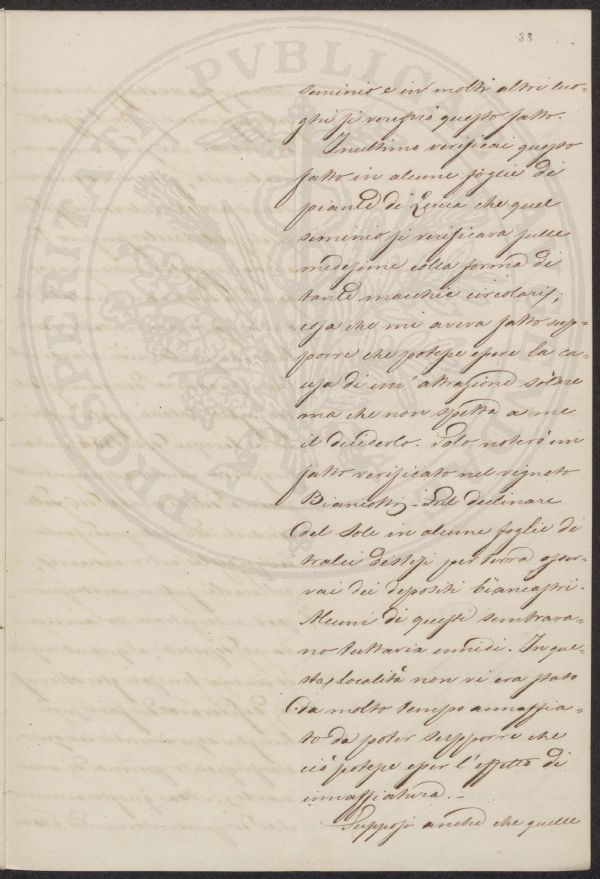 38
PROSPERITATI PVBLICAE
seminio e in molti altri luo-
ghi si verificò questo fatto.
Inultimo verificai questo
fatto in alcune foglie di
piante di Zucca che quel
seminio si verificava sulle
medesime colla forma di
tante macchie circolari;
cosa che mi aveva fatto sup-
porre che potesse essere la ca-
usa di un' attrazione solare
ma che non spetta a me
il deciderlo. Solo noterò un
fatto verificato nel vigneto
Biancotti - Sul declinare
del Sole in alcune foglie di
tralci distesi per terra osser-
vai dei depositi biancastri.
Alcuni di questi sembrava-
no tuttavia umidi. In que-
sta località non vi era stato
da molto tempo annaffia-
to da poter supporre che
ciò potesse esser l'effetto di
innaffiatura. -
Supposi anche che quelle